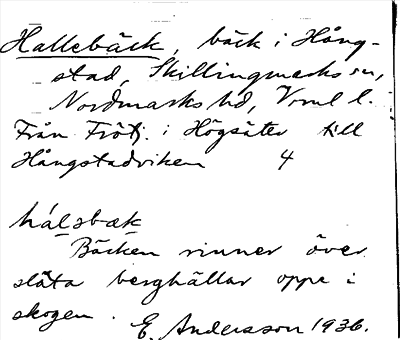 Hallebäck, bäck i Hång-
stad, Skillingmarks sn,
Nordmarks hd, Vrml l.
Från Frötj. i Högsäter till
Hångstadviken 4
hálsbæk
Bäcken rinner över
släta berghällar oppe i
skogen.
E. Andersson 1936.